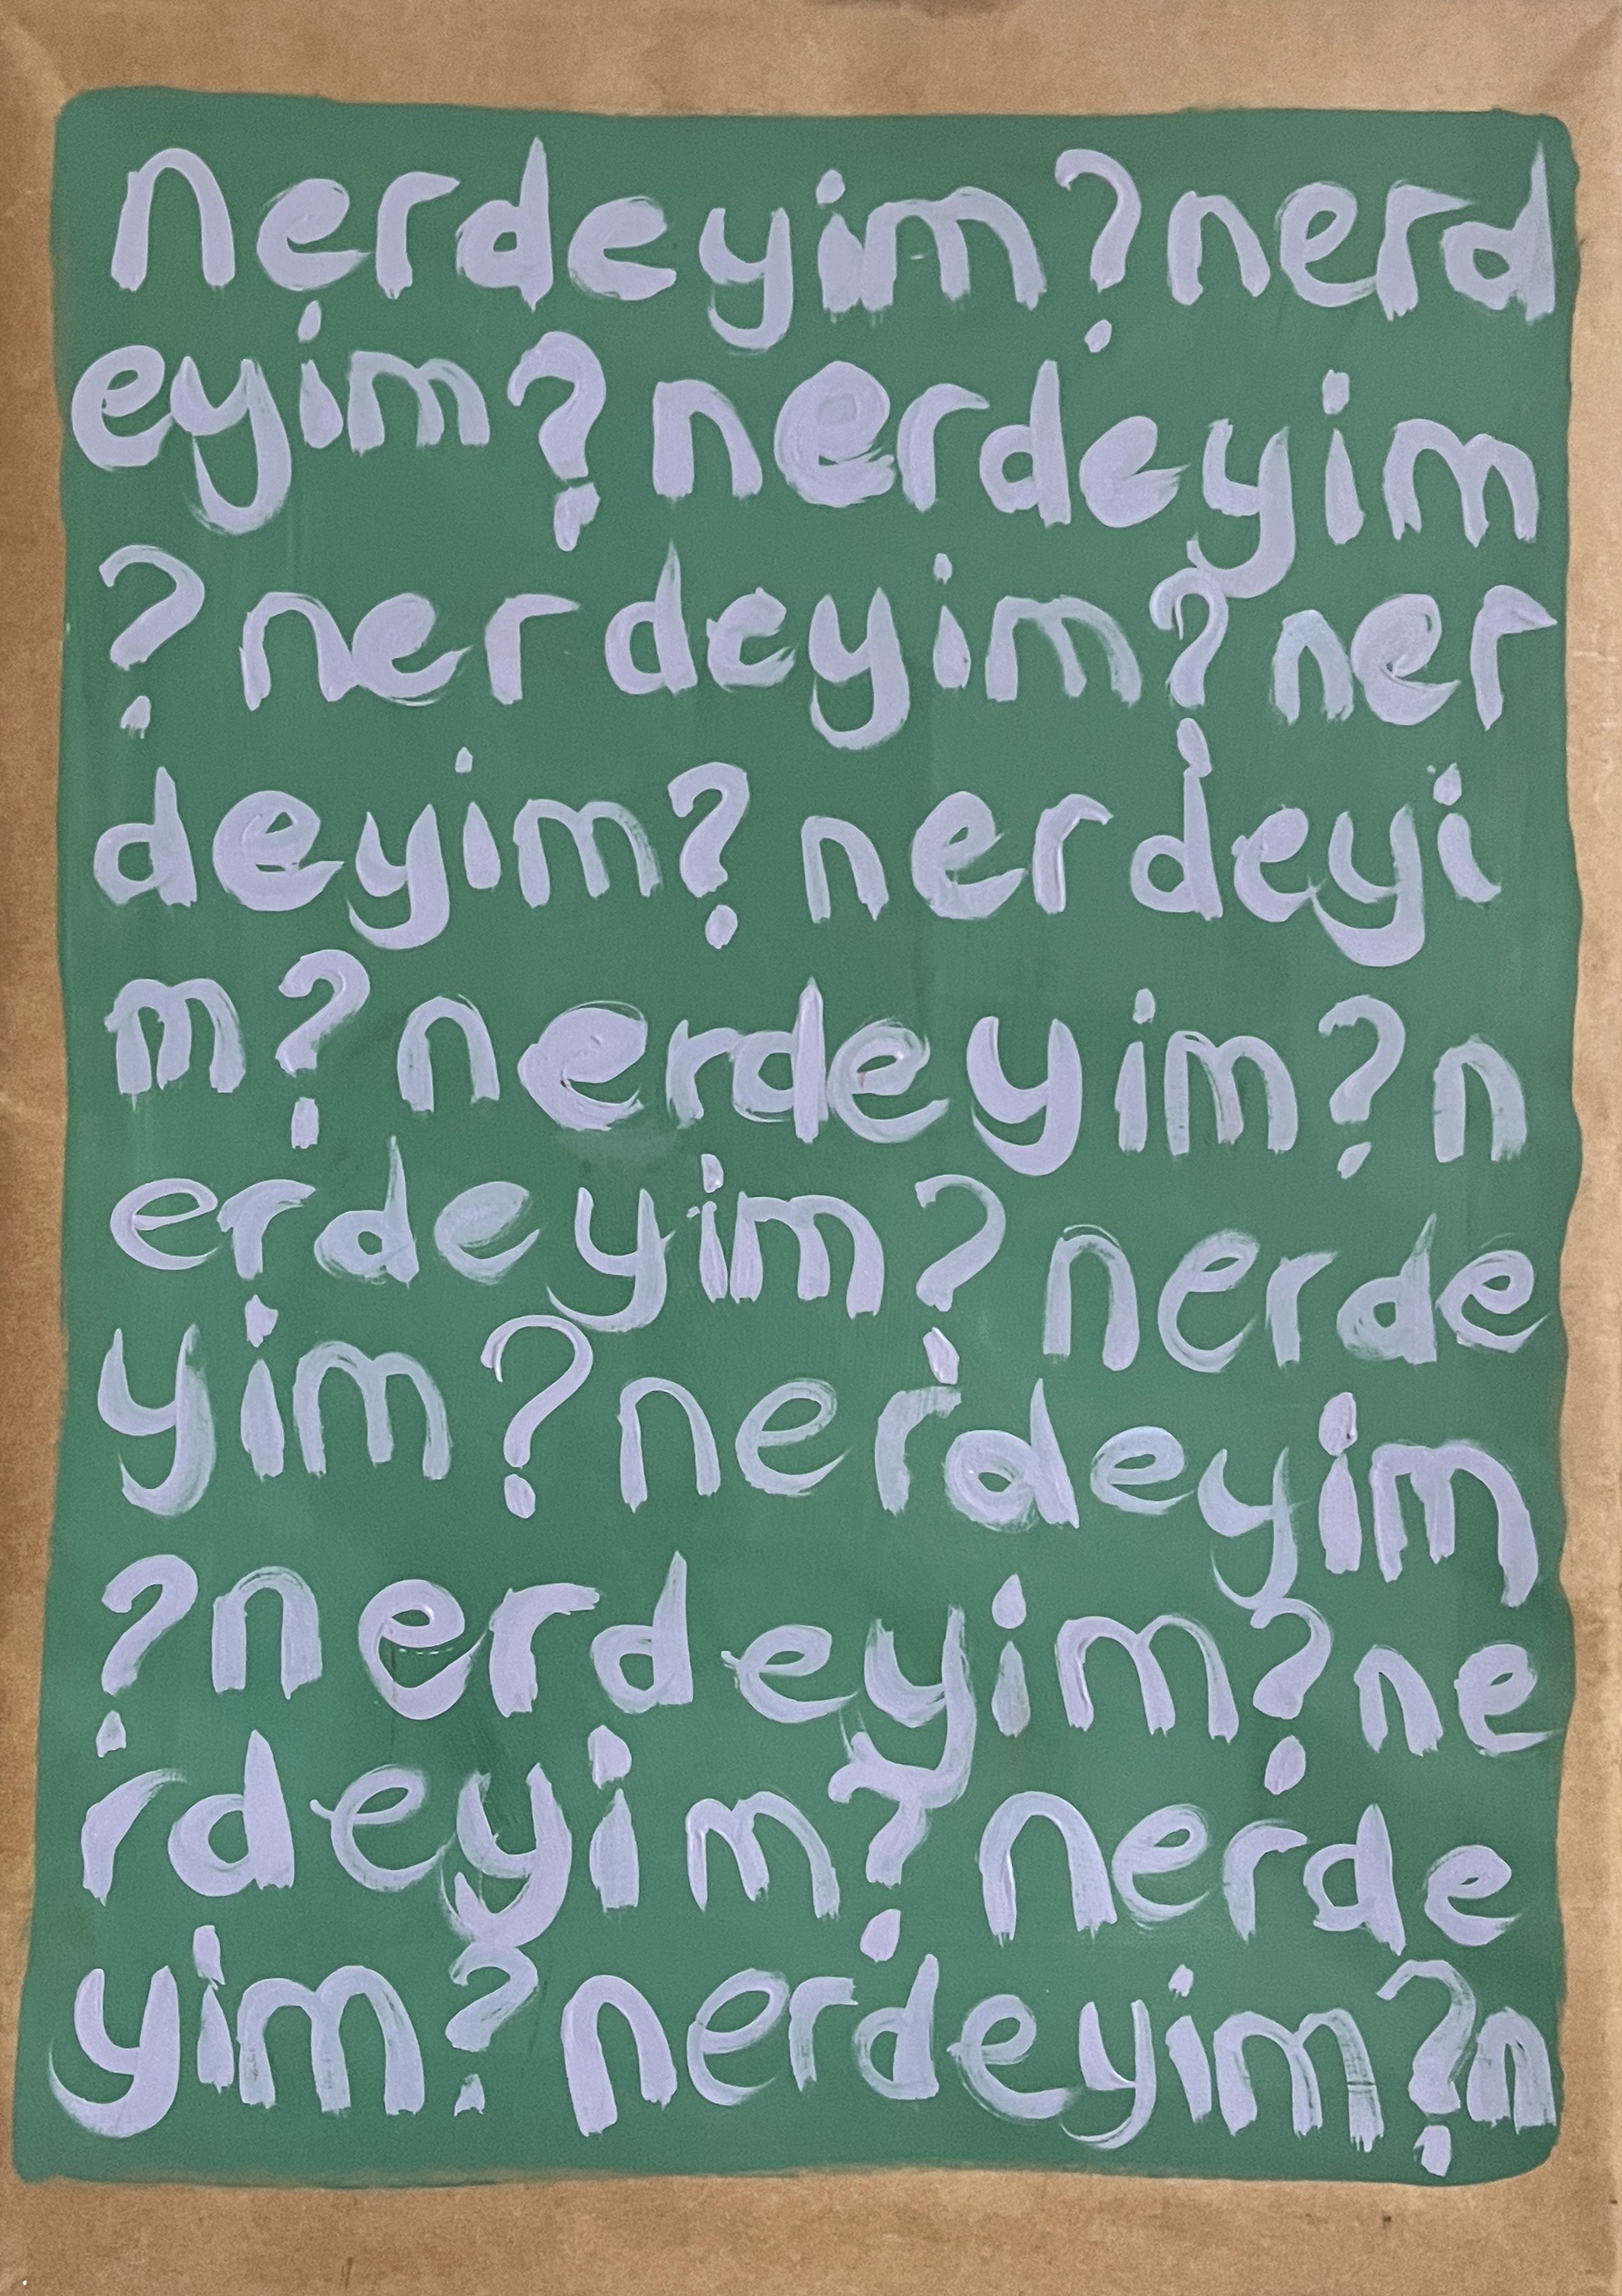 nerdeyim?nerd
eyim?nerdeyim
?nerdeyim?ner
deyim?nerdeyi
m?nerdeyim?n
erdeyim?nerde
yim?nerdeyim
?nerdeyim?ne
rdeyim?nerde
yim?nerdeyim?n